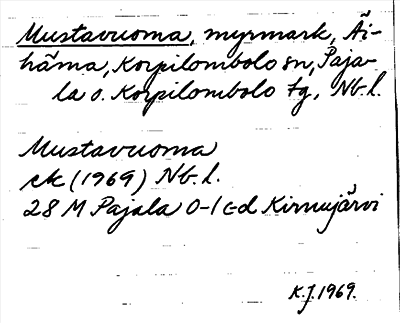 Mustavuoma, myrmark, Äi-
häma, Korpilombolo sn, Paja-
la o. Korpilombolo tg, Nb. l.
Mustavuoma
ek (1969) Nb. l.
28 M Pajala 0-1 c-d Kirnujärvi
K.J. 1969.